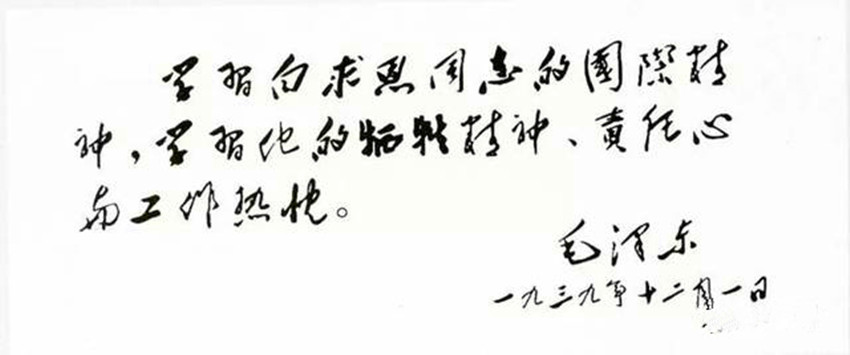 学习白求恩同志的國際精
神,学习他的牺牲精神、責任心
与工作热忱。
毛泽东
一九三九年十二月一日